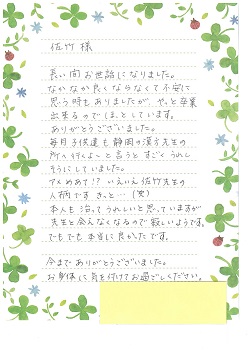 佐竹 様
長い間 お世話になりました。
なかなか良くならなくて不安に
思う時もありましたが、やっと卒業
出来るので ほっとしています。
ありがとうございました。
毎日子供達も静岡の漢方先生の
所へ行くよ〜と言うと すごくうれし
そうにしていました。
アメめあて!? いえいえ佐竹先生の
人柄です きっと…(笑)
本人も治ってうれしいと思っていますが
先生と会えなくなるので寂しいようです。
でもでも本当に良かったです。
今まで ありがとうございました。
お身体に気を付けてお過ごしください。